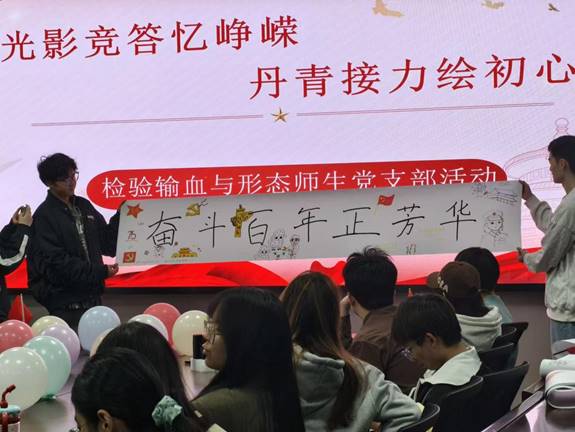 光影竞答忆峥嵘
丹青接力绘初心
检验输血与形态师生党支部活动
奋斗百年正芳华